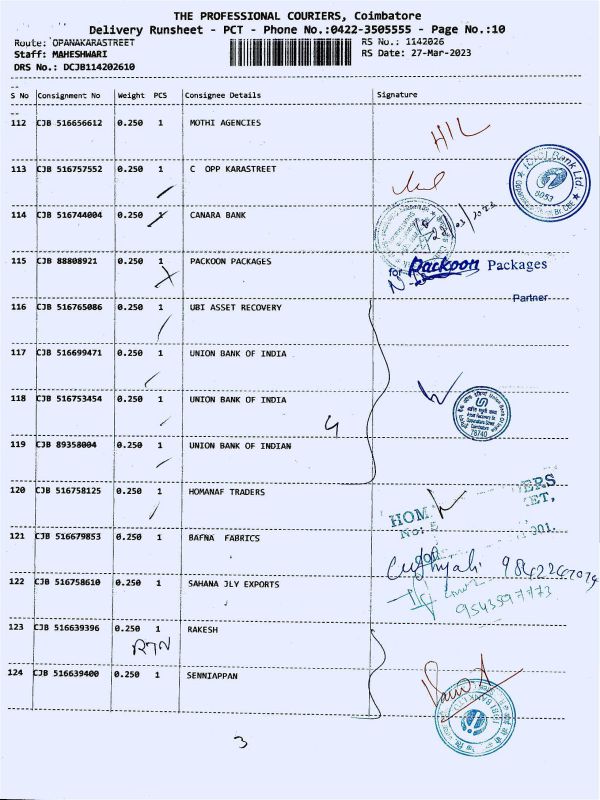 THE PROFESSIONAL COURIERS, Coimbatore
Delivery Runsheet - PCT - Phone No.:0422-3505555 - Page No.:10
Route: OPANAKARASTREET RS No.: 1142026
Staff: MAHESHWARI RS Date: 27-Mar-2023
DRS No.: DCJB114202610
S No Consignment No Weight PCS Consignee Details Signature
112 CJB 516656612 0.250 1 MOTHI AGENCIES
HIL
113 CJB 516757552 0.250 1 C OPP KARASTREET
ICICI Bank Ltd.
6053
114 CJB 516744004 0.250 1 CANARA BANK
115 CJB 88808921 0.250 1 PACKOON PACKAGES
for Packoon Packages
Partner
116 CJB 516765086 0.250 1 UBI ASSET RECOVERY
117 CJB 516699471 0.250 1 UNION BANK OF INDIA
118 CJB 516753454 0.250 1 UNION BANK OF INDIA
4
119 CJB 89358004 0.250 1 UNION BANK OF INDIAN
120 CJB 516758125 0.250 1 HOMANAF TRADERS
HOM
No: 5
001.
121 CJB 516679853 0.250 1 BAFNA FABRICS
122 CJB 516758610 0.250 1 SAHANA JLY EXPORTS
9543597773
123 CJB 516639396 0.250 1 RAKESH
RTN
124 CJB 516639400 0.250 1 SENNIAPPAN
3